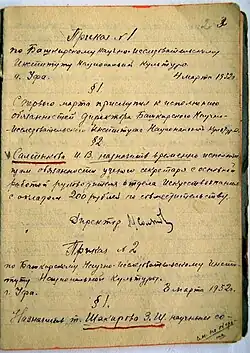 2 3
Приказ №1
по Башкирскому Научно-Исследовательскому
Институту Национальной Культуры
г. Уфа. 4 марта 1932 г.
§1
С марта приступил к исполнению
обязанностей директора Башкирского Научно-
Исследовательского Института Национальной Культуры
§2
И.В. назначить временно
обязанности ученого секретаря с основной
работой руководителя отдела Искусствознания
с окладом 200 рублей по совместительству.
Директор
Приказ №2
по Башкирскому Научно-Исследовательскому Инсти
туту Национальной Культуры.
г. Уфа. марта 1932 г.
§1.
Назначить т. Шакирова З.Ш. научным со-